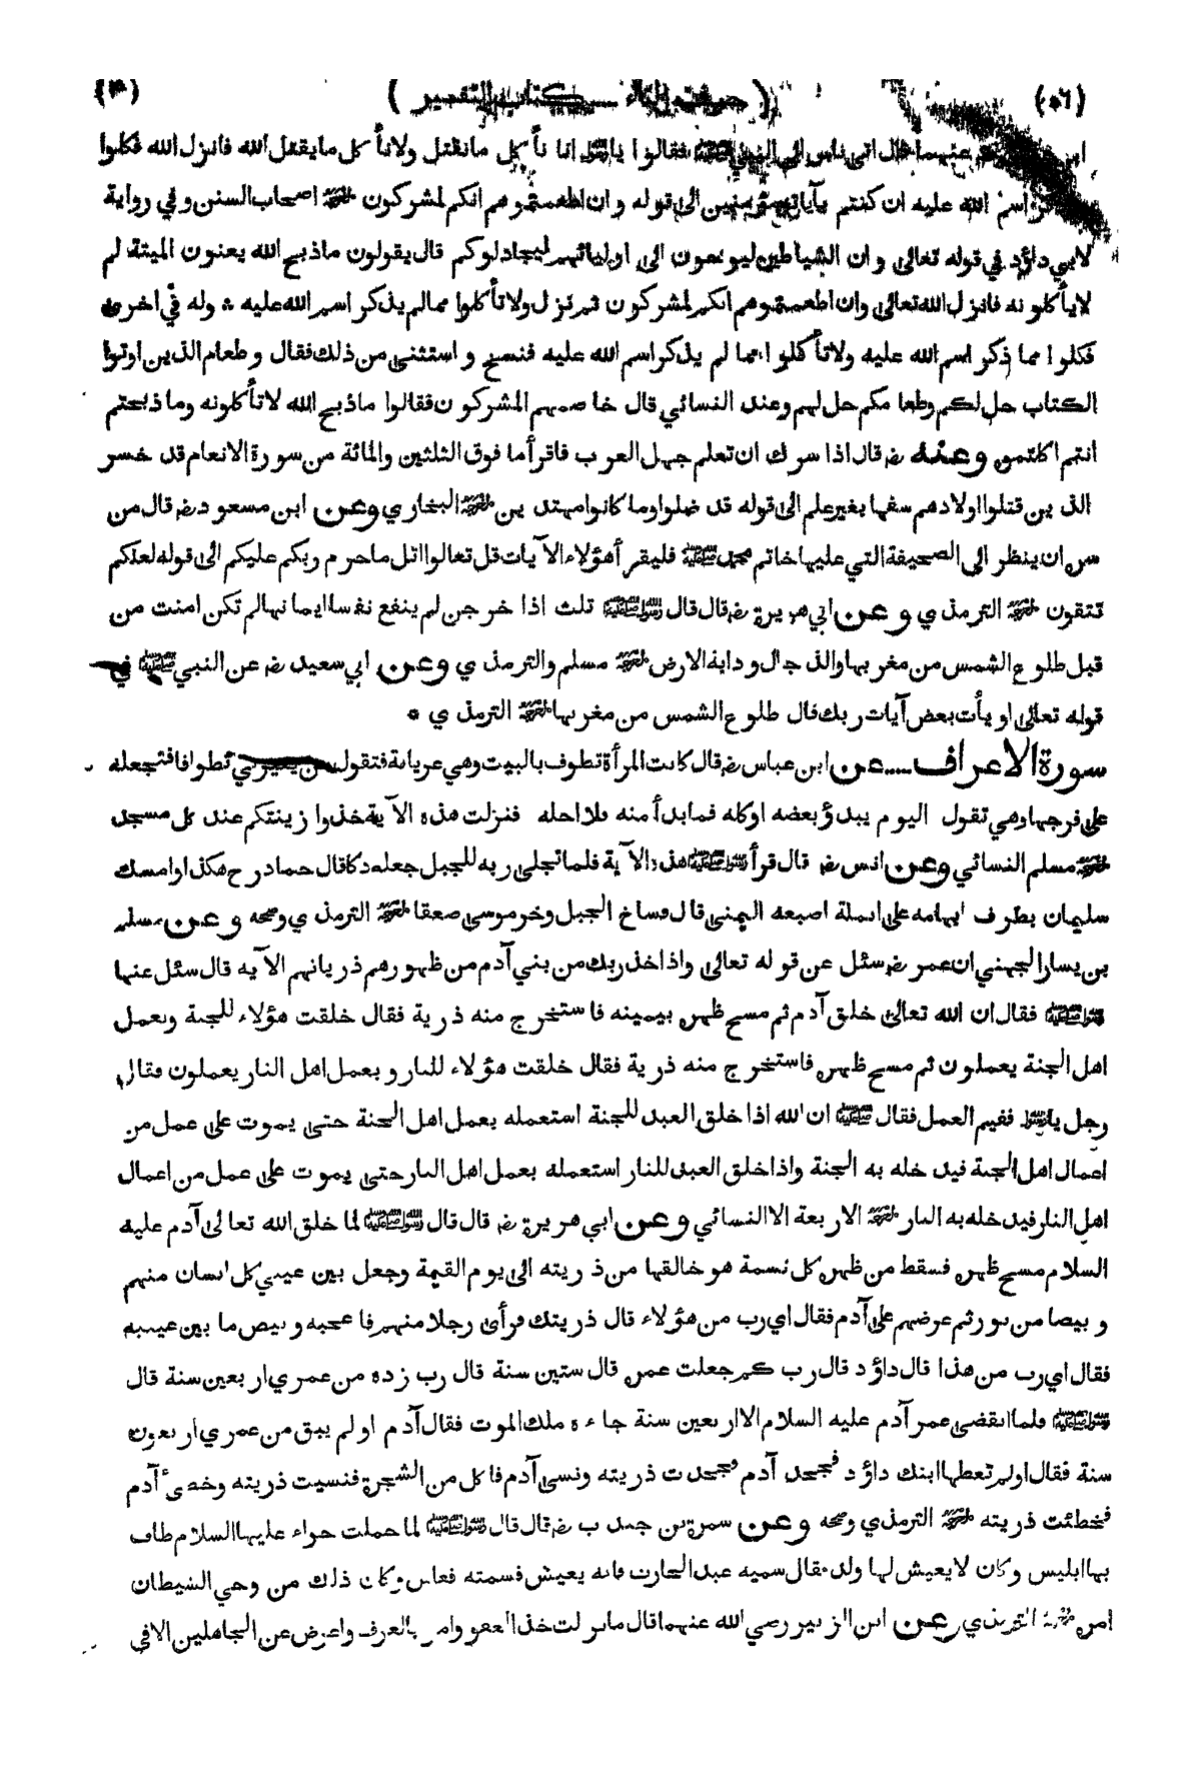 (٥٦) ( حرف التاء — كتاب التفسير )
عنهما قال اتى ناس الى النبي ﷺ فقالوا يا رسول الله انا نأكل مانقتل ولانأكل مايقتل الله فانزل الله فكلوا
ذكر اسم الله عليه ان كنتم بآياته مؤمنين الى قوله وان اطعمتموهم انكم لمشركون اخرجه اصحاب السنن وفي رواية
لابي داؤد في قوله تعالى وان الشياطين ليوحون الى اوليائهم ليجادلوكم قال يقولون ماذبح الله يعنون الميتة لم
لاياكلونه فانزل الله تعالى وان اطعمتموهم انكم لمشركون ثم نزل ولا تأكلوا ممالم يذكر اسم الله عليه * وله في اخرى
فكلوا مما ذكر اسم الله عليه ولاتأكلوا مما لم يذكر اسم الله عليه فنسخ واستثنى من ذلك فقال وطعام الذين اوتوا
الكتاب حل لكم وطعامكم حل لهم وعند النسائي قال خاصمهم المشركون فقالوا ماذبح الله لاتأكلونه وماذبحتم
انتم اكلتموه وعنه رض قال اذا سرك ان تعلم جهل العرب فاقرأ ما فوق الثلثين والمائة من سورة الانعام قد خسر
الذين قتلوا اولادهم سفها بغير علم الى قوله قد ضلوا وما كانوا مهتدين اخرجه البخاري وعن ابن مسعود رض قال من
سره ان ينظر الى الصحيفة التي عليها خاتم محمد ﷺ فليقرأ هؤلاء الآيات قل تعالوا اتل ماحرم ربكم عليكم الى قوله لعلكم
تتقون اخرجه الترمذي وعن ابي هريرة رض قال قال رسول الله ﷺ ثلث اذا خرجن لم ينفع نفسا ايمانها لم تكن امنت من
قبل طلوع الشمس من مغربها والدجال ودابة الارض اخرجه مسلم والترمذي وعن ابي سعيد رض عن النبي ﷺ في
قوله تعالى او يأت بعض آيات ربك قال طلوع الشمس من مغربها اخرجه الترمذي *
سورة الاعراف ــ عن ابن عباس رض قال كانت المرأة تطوف بالبيت وهي عريانة فتقول من يعيرني تطوافا فتجعله
على فرجها وهي تقول اليوم يبدؤ بعضه اوكله فمابدأ منه فلا احله فنزلت هذه الآية خذوا زينتكم عند كل مسجد
اخرجه مسلم النسائي وعن انس رض قال قرأ رسول الله ﷺ هذه الآية فلما تجلى ربه للجبل جعله دكا قال حماد رح هكذا وامسك
سليمان بطرف ابهامه على انملة اصبعه اليمنى قال فساخ الجبل وخر موسى صعقا اخرجه الترمذي وصحه وعن مسلم
بن يسار الجهني ان عمر رض سئل عن قوله تعالى واذ اخذ ربك من بني آدم من ظهورهم ذرياتهم الآيه قال سئل عنها
رسول الله ﷺ فقال ان الله تعالى خلق آدم ثم مسح ظهره بيمينه فاستخرج منه ذرية فقال خلقت هؤلاء للجنة وبعمل
اهل الجنة يعملون ثم مسح ظهره فاستخرج منه ذرية فقال خلقت هؤلاء للنار وبعمل اهل النار يعملون فقال
رجل يا رسول الله ففيم العمل فقال ﷺ ان الله اذا خلق العبد للجنة استعمله بعمل اهل الجنة حتى يموت على عمل من
اعمال اهل الجنة فيدخله به الجنة واذا خلق العبد للنار استعمله بعمل اهل النار حتى يموت على عمل من اعمال
اهل النار فيدخله به النار اخرجه الاربعة الا النسائي وعن ابي هريرة رض قال قال رسول الله ﷺ لما خلق الله تعالى آدم عليه
السلام مسح ظهره فسقط من ظهره كل نسمة هو خالقها من ذريته الى يوم القيمة وجعل بين عيني كل انسان منهم
وبيصا من نور ثم عرضهم على آدم فقال اي رب من هؤلاء قال ذريتك فرأى رجلا منهم فاعجبه وبيص ما بين عينيه
فقال اي رب من هذا قال داؤد قال رب كم جعلت عمره قال ستين سنة قال رب زده من عمري اربعين سنة قال
رسول الله ﷺ فلما انقضى عمر آدم عليه السلام الا اربعين سنة جاءه ملك الموت فقال آدم اولم يبق من عمري اربعون
سنة فقال اولم تعطها ابنك داؤد فجحد آدم فجحدت ذريته ونسى آدم فاكل من الشجرة فنسيت ذريته وخطئ آدم
فخطئت ذريته اخرجه الترمذي وصحه وعن سمرة بن جندب رض قال قال رسول الله ﷺ لما حملت حواء عليها السلام طاف
بها ابليس وكان لا يعيش لها ولد فقال سميه عبد الحارث فانه يعيش فسمته فعاش وكان ذلك من وحي الشيطان
امره اخرجه الترمذي وعن ابن الزبير رضي الله عنهما قال مانزلت خذ العفو وامر بالعرف واعرض عن الجاهلين الا في